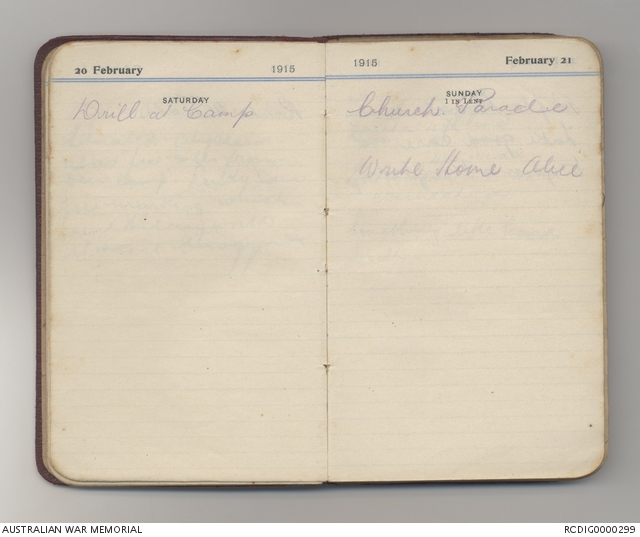 20 February 1915
SATURDAY
Drill at Camp
1915 February 21
SUNDAY
1 IN LENT
Church Parade
Write Home Alice
AUSTRALIAN WAR MEMORIAL
RCDIG0000299